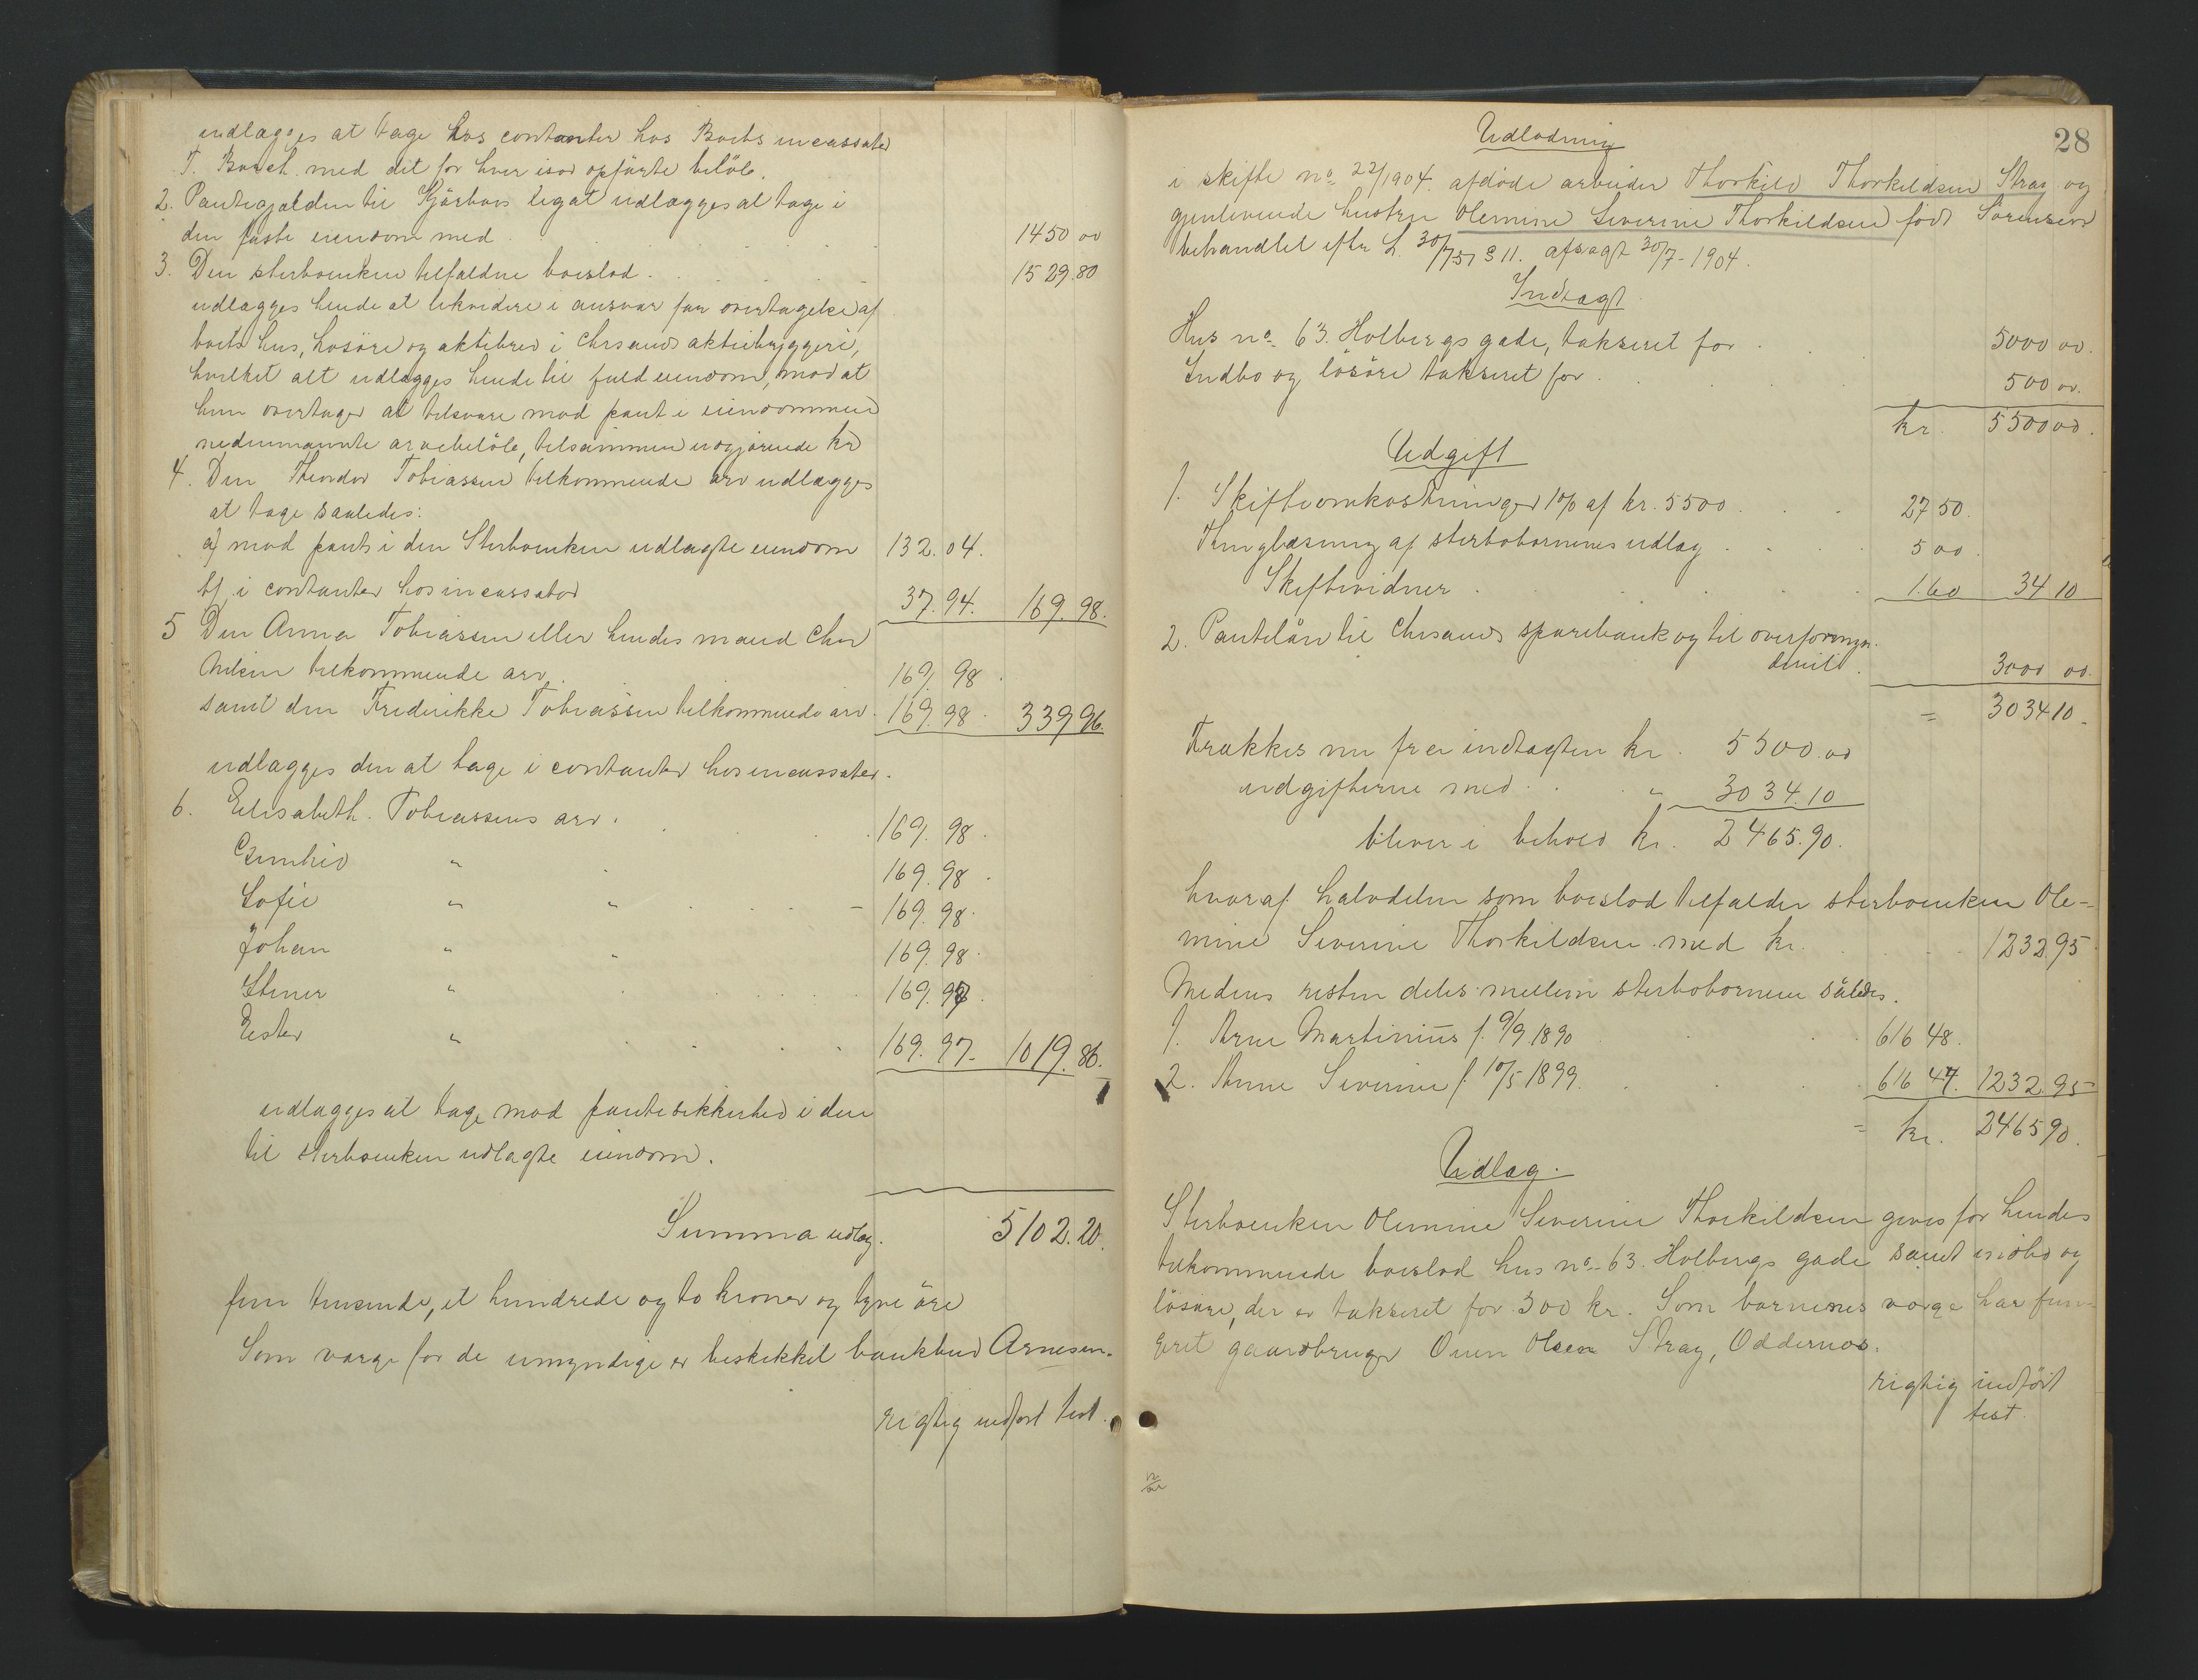 udlægges at tage hos contanter hos Boets incassator
T. Busch med det for hver især opførte beløb.
2. Pantegjælden til Kjørboes legat udlægges at tage i
den faste eiendom med 1450 00
3. Den sterboenken tilfaldne boeslod 1529.80
udlægges hende at likvidere i ansvar for overtagelse af
boets hus, løsøre og aktiebrev i Chrsands aktiebryggeri,
hvilket alt udlægges hende til fuld eiendom, mod at
hun overtager at tilsvare mod pant i eiendommen
nedennævnte arvebeløb, tilsammen udgjørende kr
4. Den Theodor Tobiassen tilkommende arv udlægges
at tage saaledes:
a) mod pant i den Sterboenken udlagte eiendom 132.04.
b) i contanter hos incassator 37.94. 169.98.
5 Den Anna Tobiassen eller hendes mand Chr
Nilsen tilkommende arv 169.98
samt den Fredrikke Tobiassen tilkommende arv 169.98 339 96.
udlægges dem at tage i contanter hos incassator.
6. Elisabeth Tobiassens arv 169.98
Gunhild " 169.98
Sofie " " 169.98
Johan " " 169.98
Stener " 169.97
Ester " 169.97 1019.86.
udlægges at tage mod pantesikkerhed i den
til sterboenken udlagte eiendom.
Summa udlæg. 5102.20.
fem tusende, et hundrede og to kroner og tyve øre
Som værge for de umyndige er beskikket bankbud Arnesen.
rigtig indført test.
28
Udlodning
i skifte no 22/1904. afdøde arbeider Thorkild Thorkildsen Stray og
gjenlevende hustru Olemine Severine Thorkildsen født Sørensen
behandlet efter L. 30/7 51 § 11. afsagt 30/7-1904.
Indtægt
Hus no 63 Holbergs gade, takseret for 5000 00.
Indbo og løsøre takseret for 500 00.
kr. 5500 00.
Udgift
1. Skifteomkostninger ½% af kr. 5500 27 50
Thinglæsning af sterbobørnenes udlæg 5 00
Skiftevidner 1.60 34 10
2. Pantelån til Chrsands sparebank og til overformyn.
deriet 3000 00.
= 3034 10.
Trækkes nu fra indtægten kr. 5500.00
udgifterne med " 3034.10
bliver i behold kr. 2465.90.
hvoraf halvdelen som boeslod tilfalder sterboenken Ole-
mine Severine Thorkildsen med kr. 1232.95
Medens resten deles mellem sterbobørnene således.
1. Arne Martinius f. 9/9 1890 616 48.
2. Anne Severine f. 10/5 1899 616 47. 1232.95
= kr. 2465 90.
Udlæg.
Sterboenken Olemine Severine Thorkildsen gives for hendes
tilkommende boeslod hus no 63 Holbergs gade samt indbo og
løsøre, der er takseret for 500 kr. Som børnenes værge har fun-
geret gaardbruger Ouen Olsen Stray, Oddernes.
rigtig indført
test.